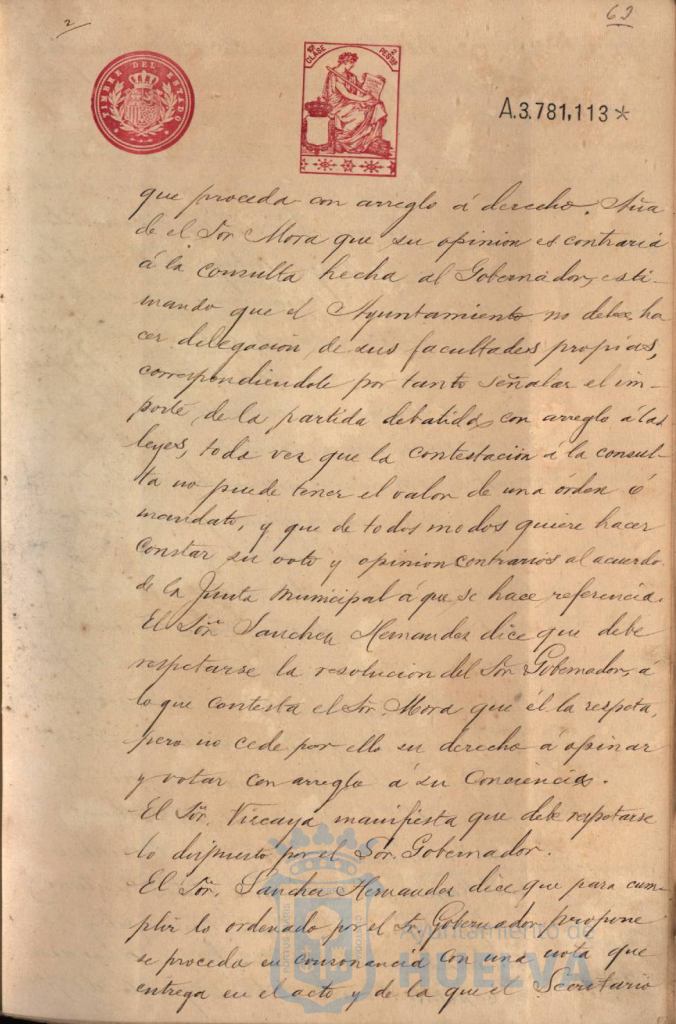 63
2
TIMBRE DEL ESTADO
10ª CLASE 2 PESETAS
A.3.781,113*
que proceda con arreglo á derecho. Aña
de el Sor Mora que su opinion es contraria
á la consulta hecha al Gobernador, esti-
mando que el Ayuntamiento no debe ha
cer delegación de sus facultades propias,
correspondiendole por tanto señalar el im-
porte de la partida debatida con arreglo á las
leyes, toda vez que la contestación á la consul-
ta no puede tener el valor de una órden ó
mandato, y que de todos modos quiere hacer
constar su voto y opinion contrarios al acuerdo
de la Junta municipal á que se hace referencia.
El Sor. Sanchez Hernandez dice que debe
respetarse la resolucion del Sor. Gobernador, á
lo que contesta el Sor. Mora que él la respeta,
pero no cede por ello su derecho á opinar
y votar con arreglo á su Conciencia.
El Sor. Vizcaya manifiesta que debe respetarse
lo dispuesto por el Sor. Gobernador.
El Sor. Sanchez Hernandez dice que para cum-
plir lo ordenado por el Sr. Gobernador propone
se proceda en consonancia con una nota que
entrega en el acto y de la que el Secretario
Ayuntamiento de
HUELVA